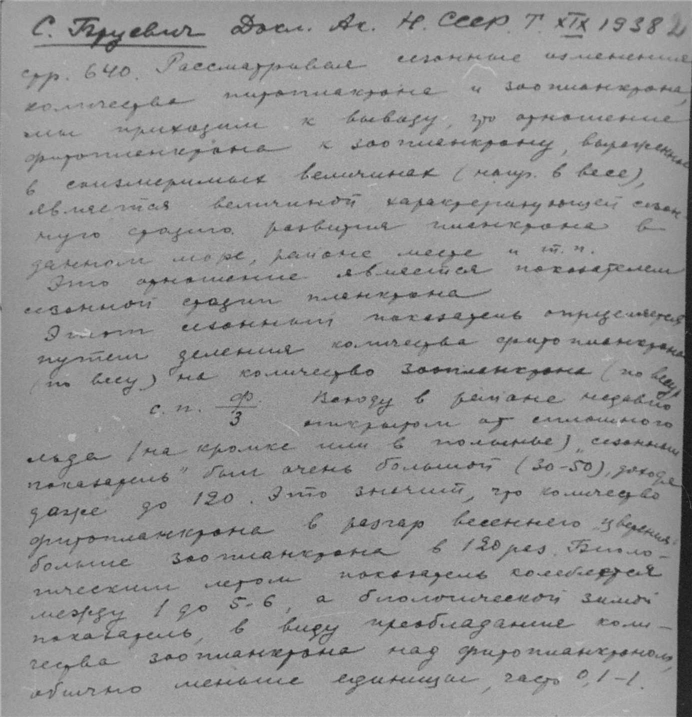 С. Бруевич Докл. Ак. Н. СССР. Т. XIX 1938
стр. 640. Рассматривая сезонные изменения
количества фитопланктона и зоопланктона,
мы приходим к выводу, что отношение
фитопланктона к зоопланктону, выраженное
в соизмеримых величинах (напр. в весе),
является величиной характеризующей сезон-
ную стадию развития планктона в
данном море, районе месте и т.п.
Это отношение является показателем
сезонной стадии планктона
Этот сезонный показатель определяется
путем деления количества фитопланктона
(по весу) на количество зоопланктона (по весу)
с. п. Ф/З Всюду в районе недавно
открытом от сплошного
льда (на кромке или в полынье) „сезонный
показатель" был очень большой (30-50), доходя
даже до 120. Это значит, что количество
фитопланктона в разгар весеннего „цветения"
больше зоопланктона в 120 раз. Биоло-
гическим летом показатель колеблется
между 1 до 5-6, а биологической зимой
показатель, в виду преобладание коли-
чества зоопланктона над фитопланктоном,
обычно меньше единицы, часто 0,1-1.